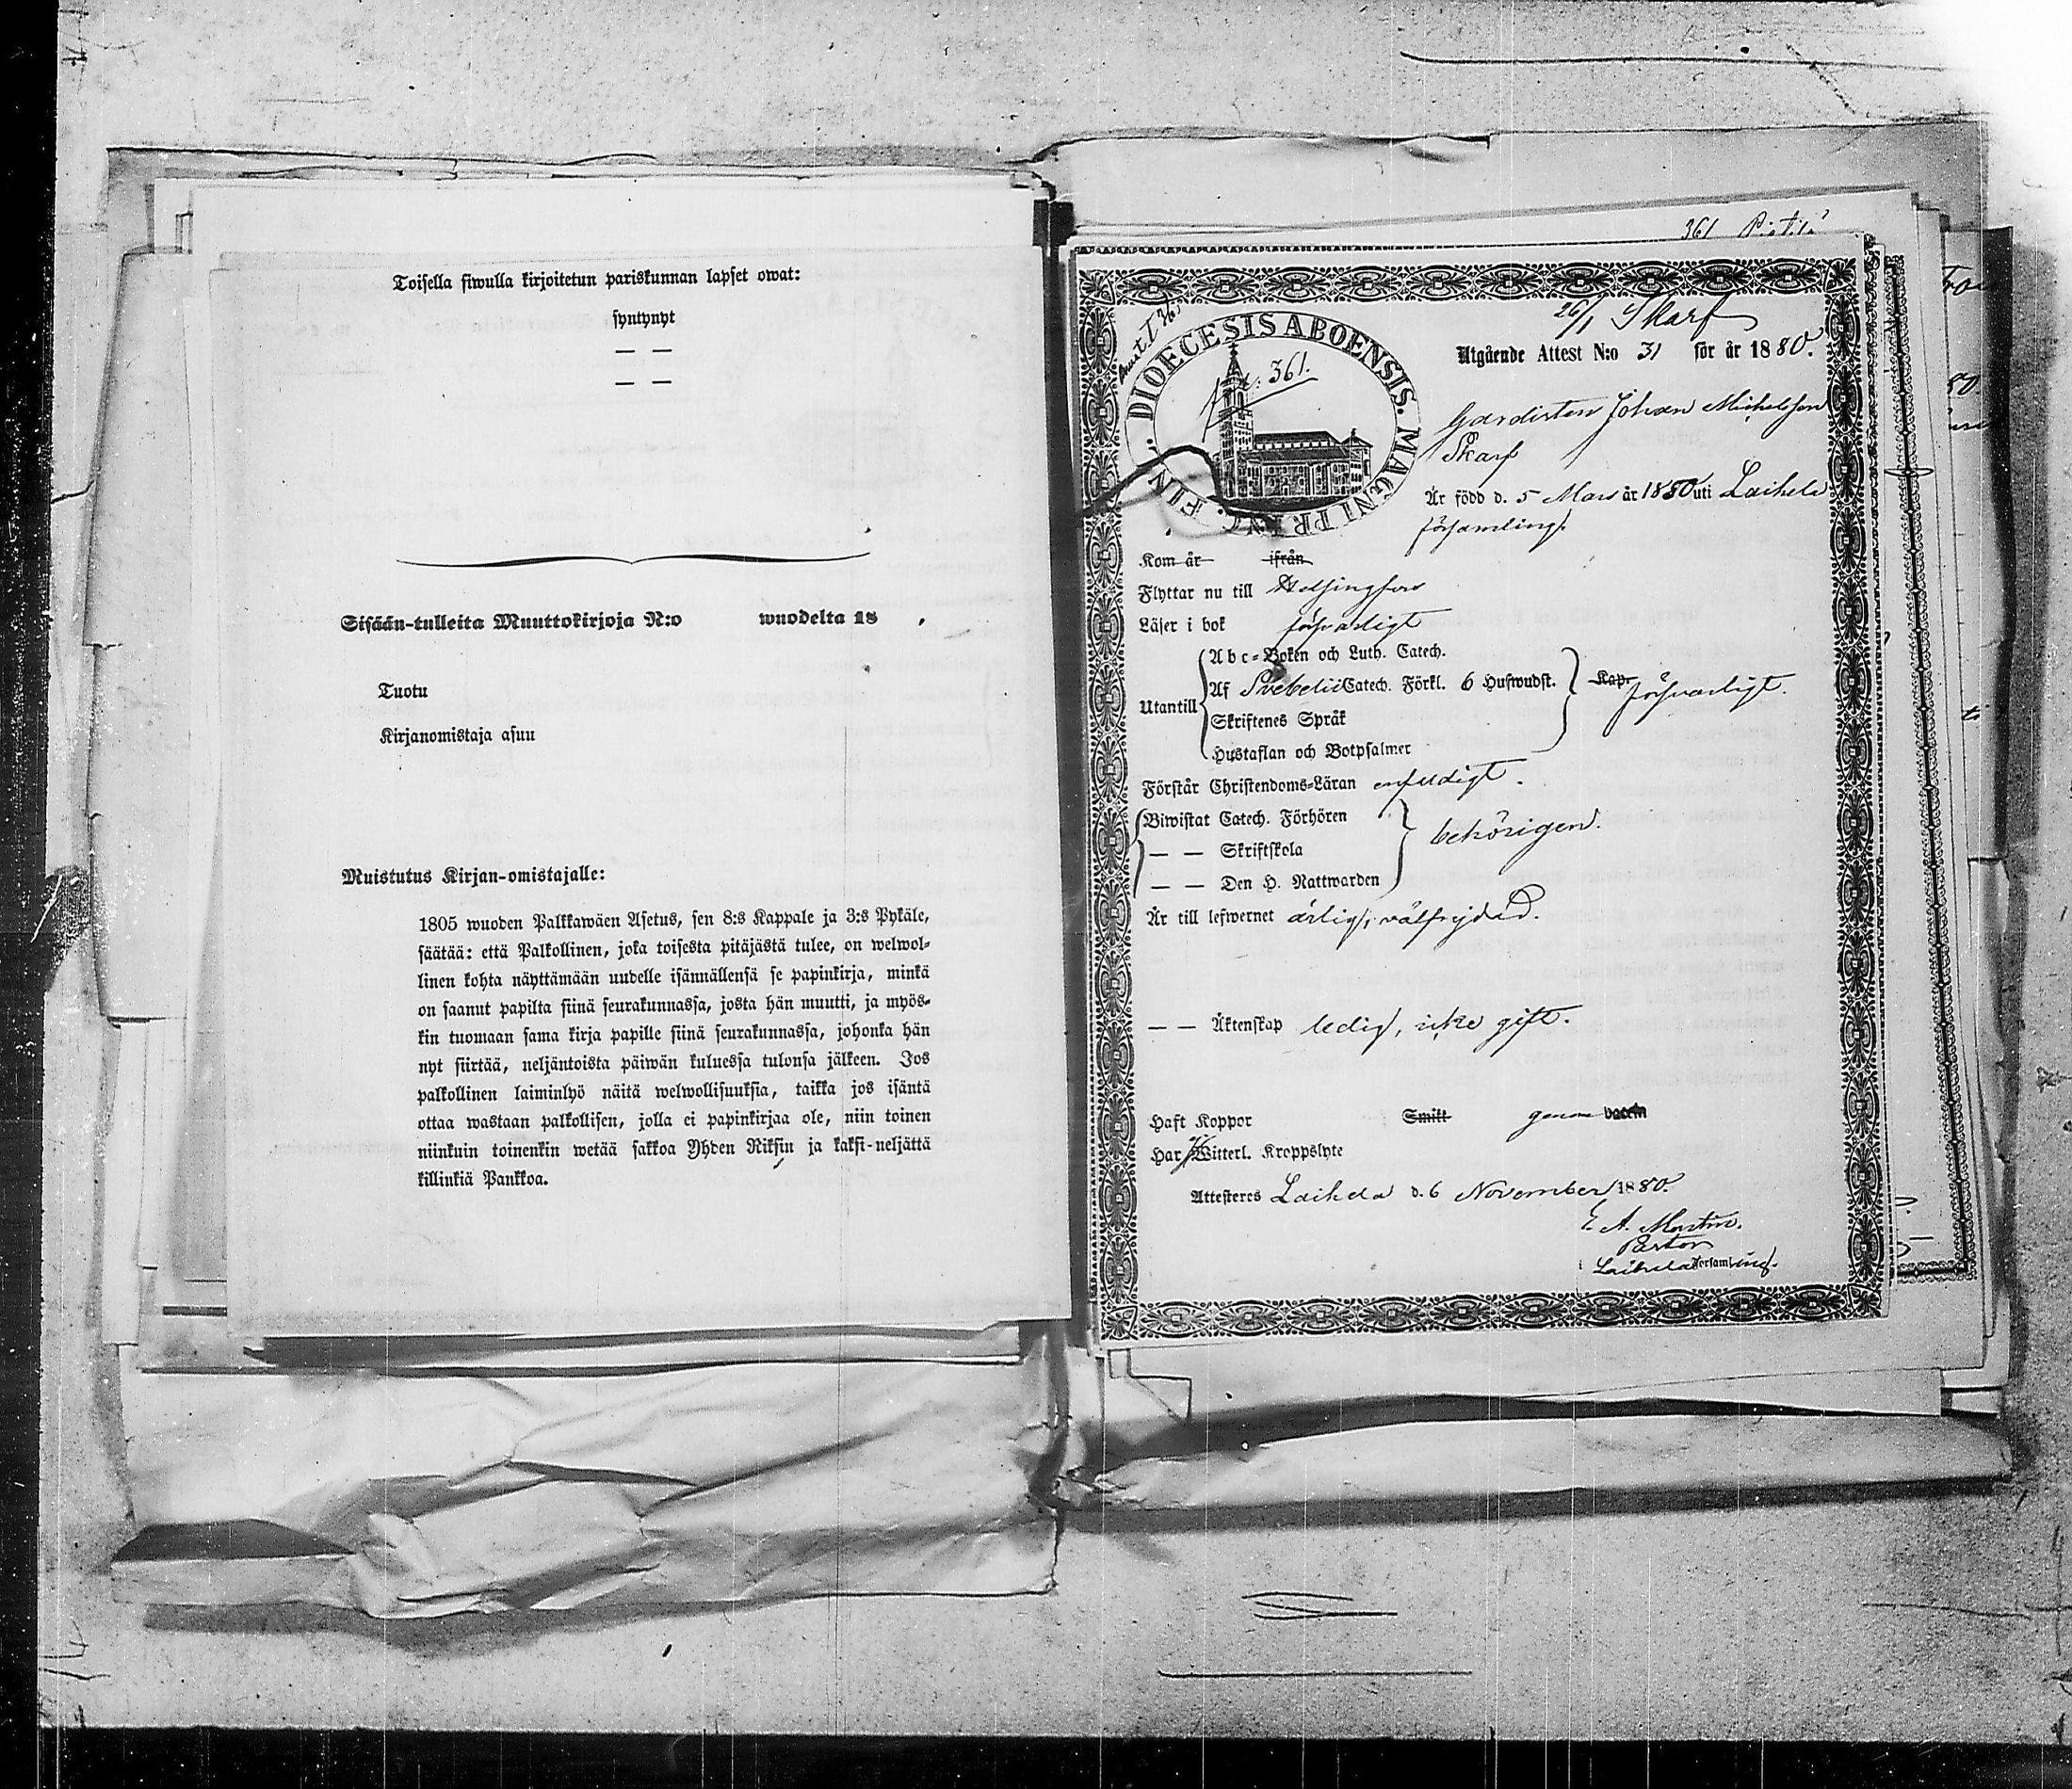 Toisella siwulla kirjoitetun pariskunnan lapset owat:
syntynyt
— —
— —
Sisään-tulleita Muuttokirjoja N:o wuodelta 18 .
Tuotu
Kirjanomistaja asuu
Muistutus Kirjan-omistajalle:
1805 wuoden Palkkawäen Asetus, sen 8:s Kappale ja 3:s Pykäle,
säätää: että Palkollinen, joka toisesta pitäjästä tulee, on welwol-
linen kohta näyttämään uudelle isännällensä se papinkirja, minkä
on saanut papilta siinä seurakunnassa, josta hän muutti, ja myös-
kin tuomaan sama kirja papille siinä seurakunnassa, johonka hän
nyt siirtää, neljäntoista päiwän kuluessa tulonsa jälkeen. Jos
palkollinen laiminlyö näitä welwollisuuksia, taikka jos isäntä
ottaa wastaan palkollisen, jolla ei papinkirjaa ole, niin toinen
niinkuin toinenkin wetää sakkoa Yhden Riksin ja kaksi-neljättä
killinkiä Pankkoa.
361
26/1 Skarf
DIOECESIS ABOENSIS. MAGNI PRINC. FIN.
361.
Utgående Attest N:o 31 för år 1880.
Gardisten Johan Michelsson
Skarf
Är född d. 5 Mars år 1850 uti Laihela
församling.
Kom år ifrån
Flyttar nu till Helsingfors
Läser i bok försvarligt
Abc-Boken och Luth. Catech.
Utantill Af Svebelii Catech. Förkl. 6 Hufwudst. Kap. försvarligt.
Skriftenes Språk
Hustaflan och Botpsalmer
Förstår Christendoms-Läran enfaldigt.
Biwistat Catech. Förhören
— — Skriftskola behörigen.
— — Den H. Nattwarden
Är till lefwernet ärlig, välfrejdad.
— — Äktenskap ledig, icke gift.
Haft Koppor Smitt genom vaccin
Har Witterl. Kroppslyte
Attesteres Laihela d. 6 November 1880.
E. A.
Pastor
i Laihela Församling.